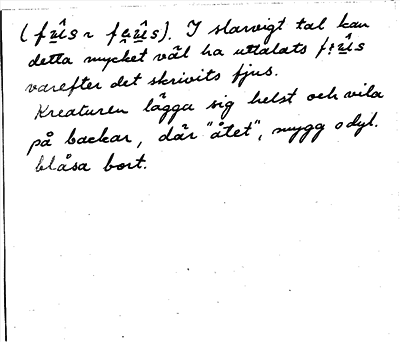 (fu̲îs ~ fe̯u̲îs). I slarvigt tal kan
detta mycket väl ha uttalats fi̯u̲îs
varefter det skrivits fjus.
Kreaturen lägga sig helst och vila
på backar, där "åtet", mygg o dyl.
blåsa bort.